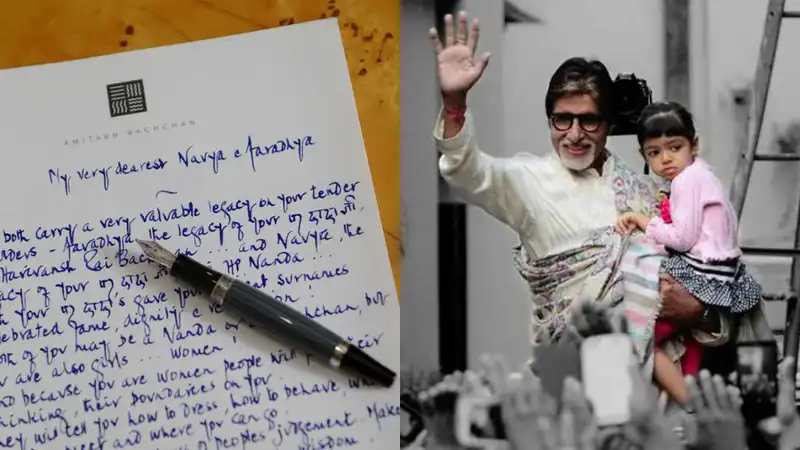 AMITABH BACHCHAN
My very dearest Navya & Aaradhya
both carry a very valuable legacy on your tender
- Aaradhya, the legacy of your पर दादा जी,
Harivansh Rai Bachchan ... and Navya, the
of your पर दादा जी HP Nanda ...
your पर दादा's gave you surnames
fame, dignity &
of you may be a Nanda or Bachchan, but
are also girls ... women !
and because you are women people will their
thinking, their boundaries on you.
will tell you how to dress, how to behave, who
meet and where you can go.
of peoples judgement. Make
wisdom.